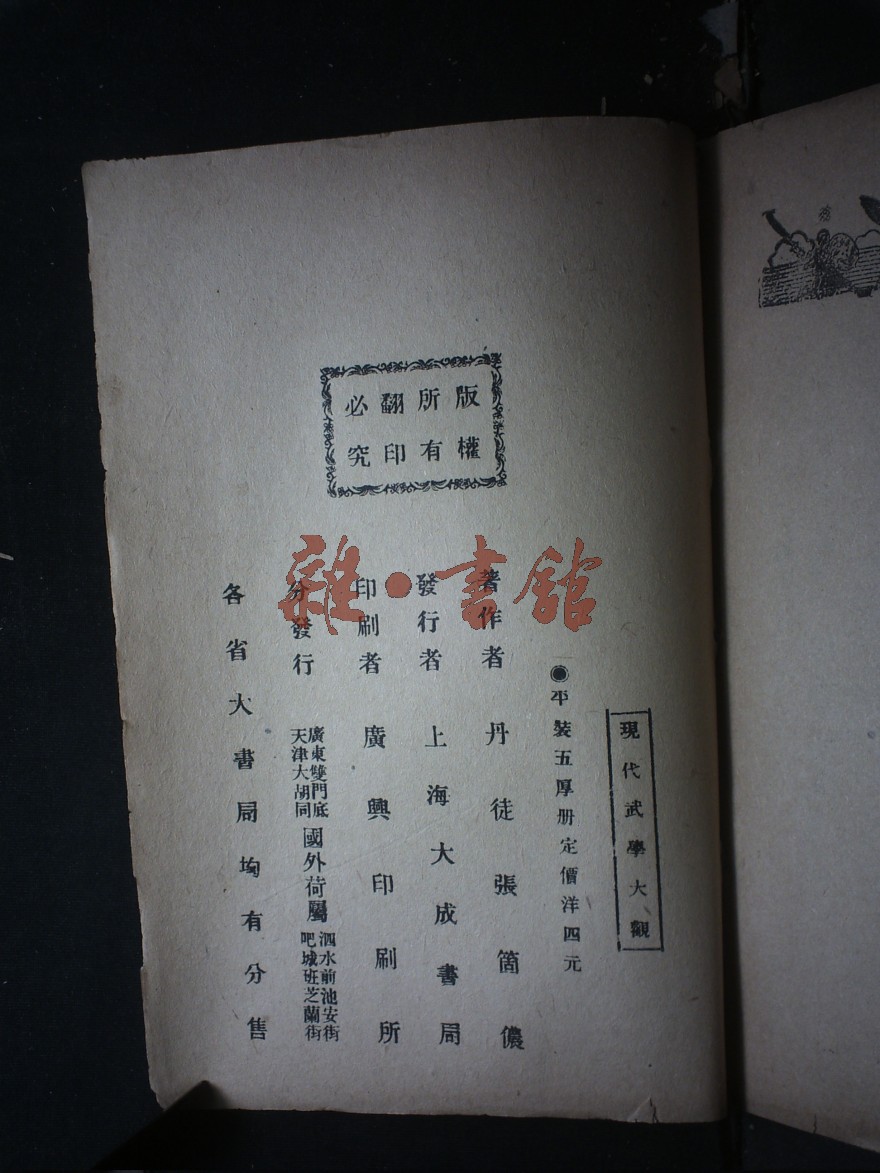 現代武學大觀
●平裝五厚册定價洋四元
版權
所有
翻印
必究
著作者 丹徒張箇儂
發行者 上海大成書局
印刷者 廣興印刷所
分發行 廣東雙門底 天津大胡同 國外荷屬 泗水前池安街 吧城班芝蘭街
各省大書局均有分售
雜·書館